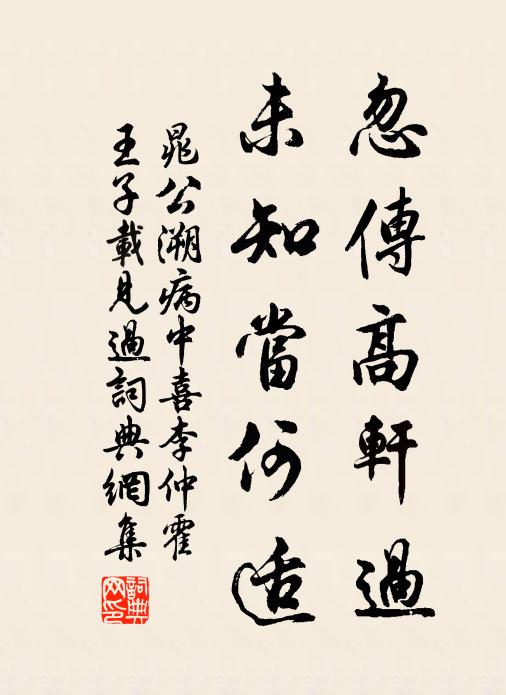 忽傳高軒過
未知當何适
晁公溯病中喜李仲霍
王子載見過詞典網集
詞典网印